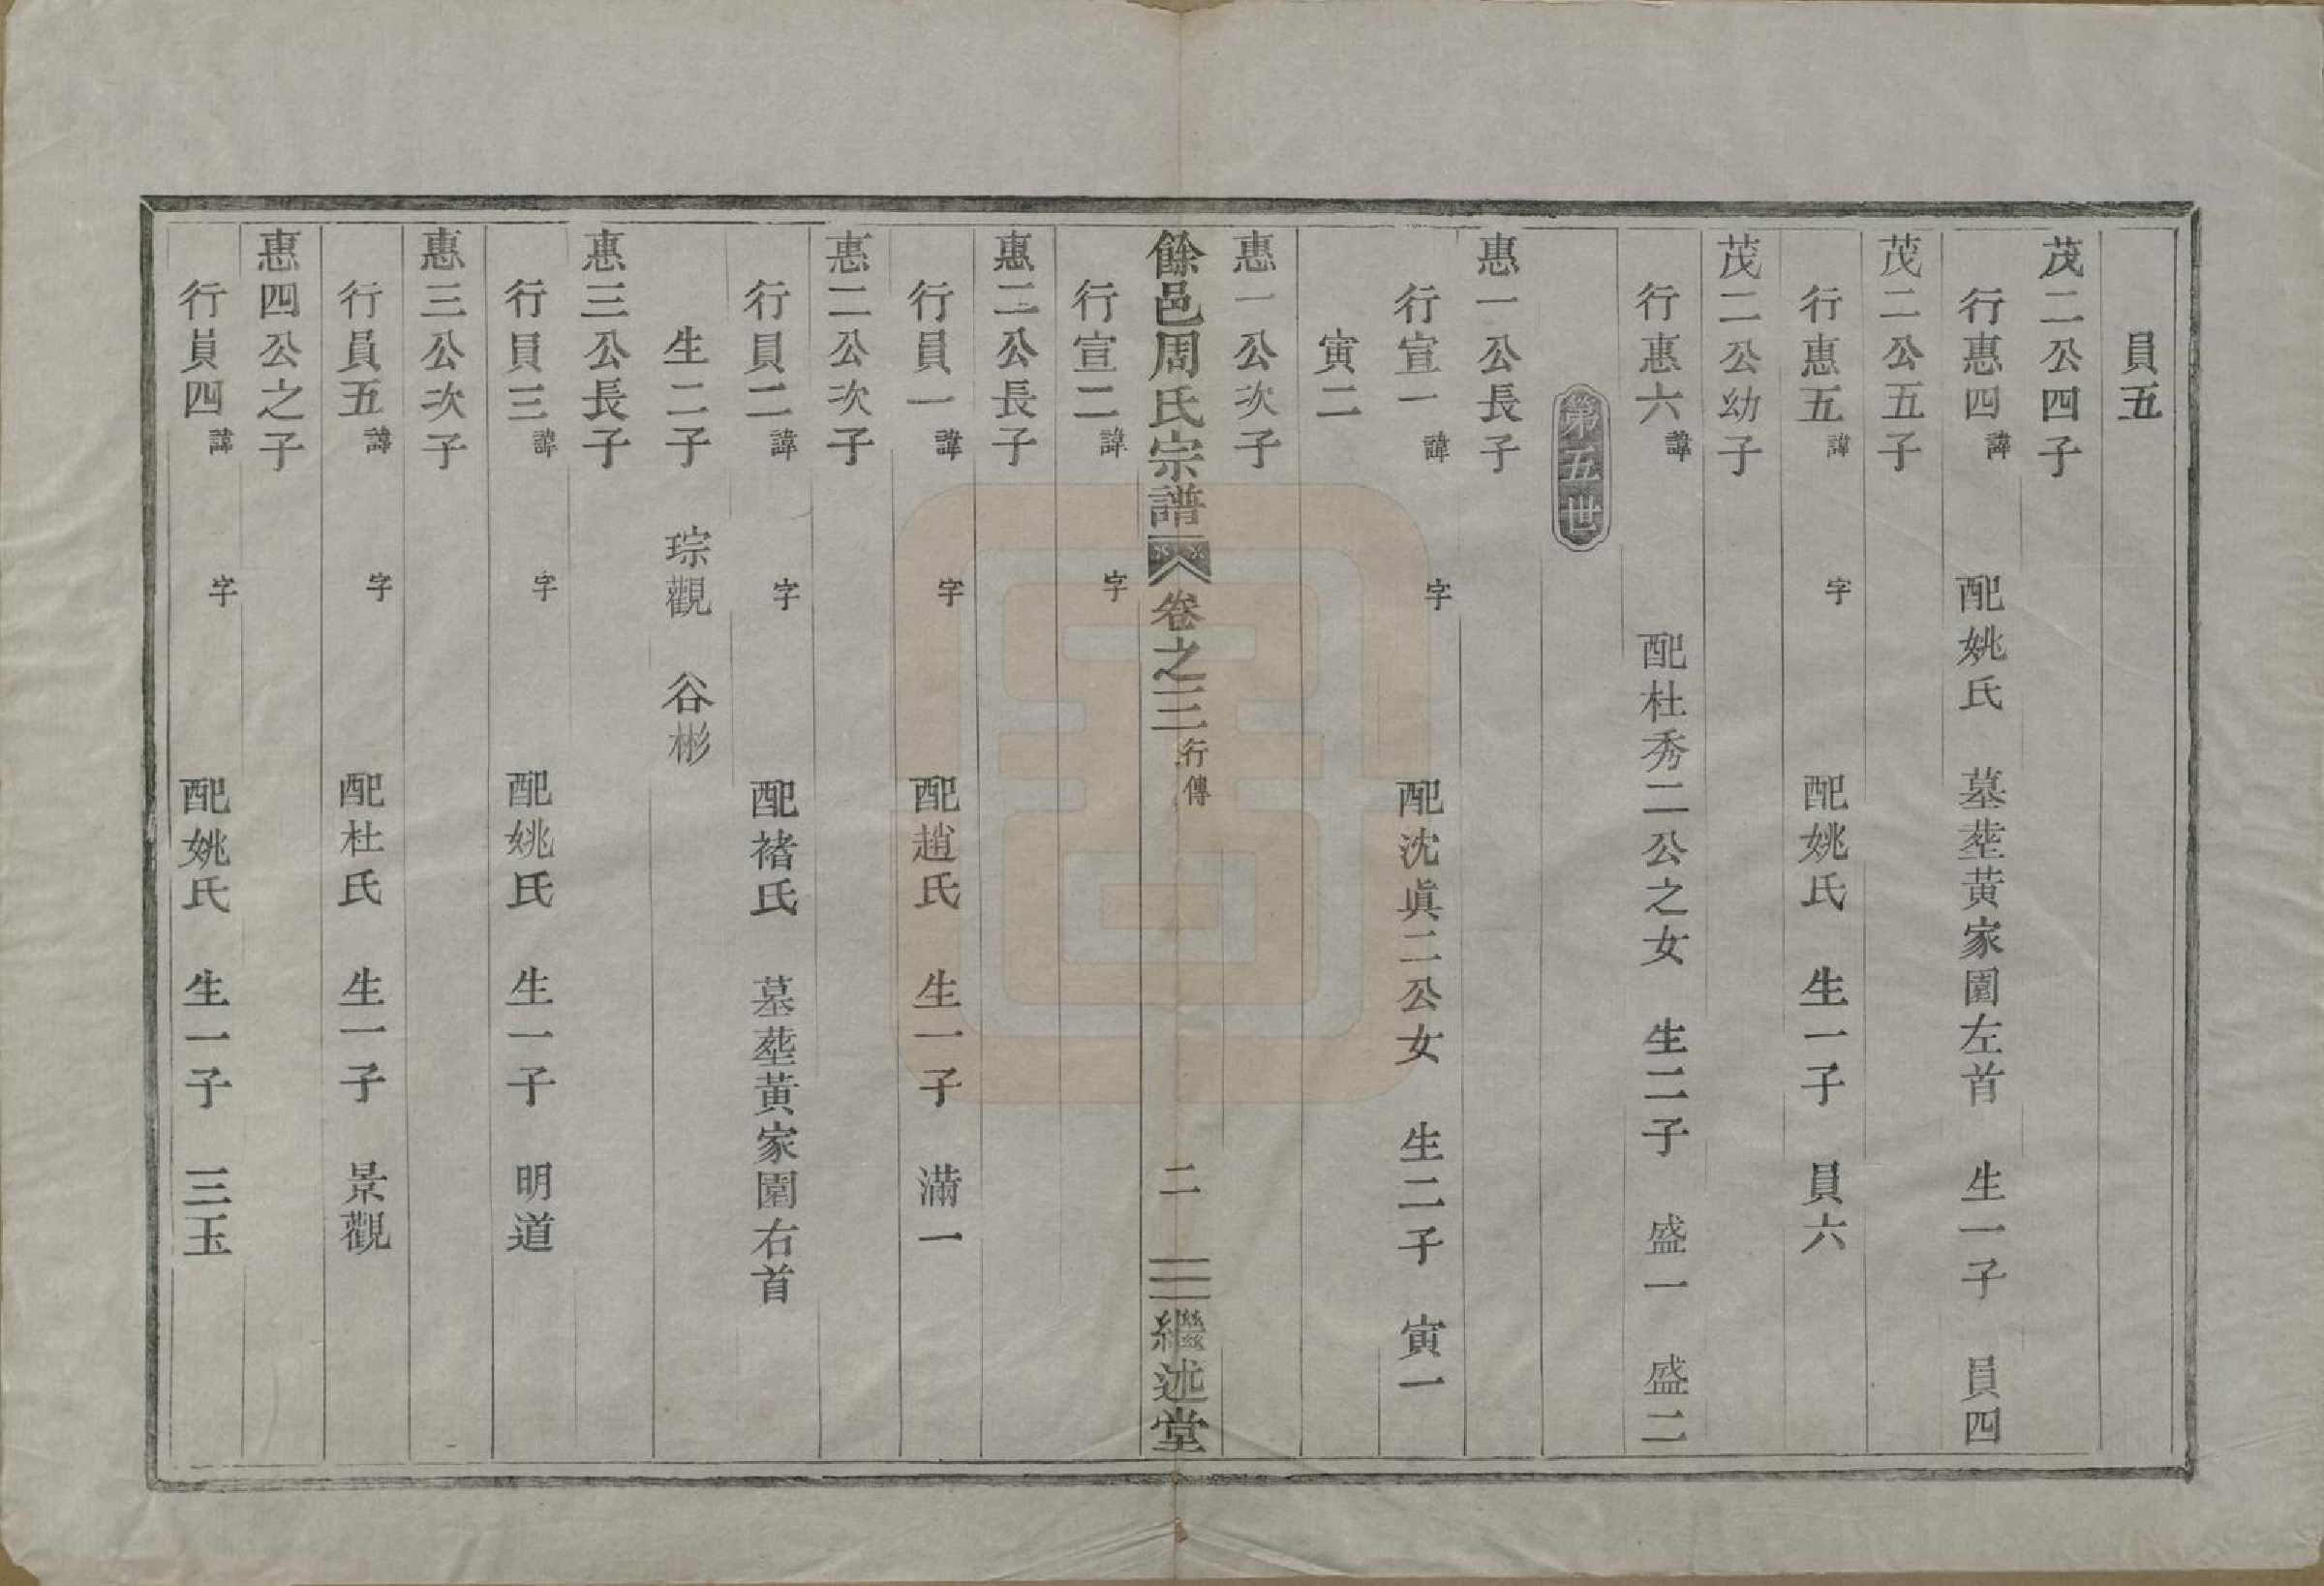 員五
茂二公四子
行惠四諱　配姚氏　墓塟黄家園左首　生一子　員四
茂二公五子
行惠五諱　字　配姚氏　生一子　員六
茂二公幼子
行惠六諱　配杜秀二公之女　生二子　盛一　盛二
第五世
惠一公長子
行宣一諱　字　配沈眞二公女　生二子　寅一
寅二
惠一公次子
餘邑周氏宗譜　卷之三　行傳　二　繼述堂
行宣二諱　字
惠二公長子
行員一諱　字　配趙氏　生一子　滿一
惠二公次子
行員二諱　字　配褚氏　墓塟黃家園右首
生二子　琮觀　谷彬
惠三公長子
行員三諱　字　配姚氏　生一子　明道
惠三公次子
行員五諱　字　配杜氏　生一子　景觀
惠四公之子
行員四諱　字　配姚氏　生一子　三玉